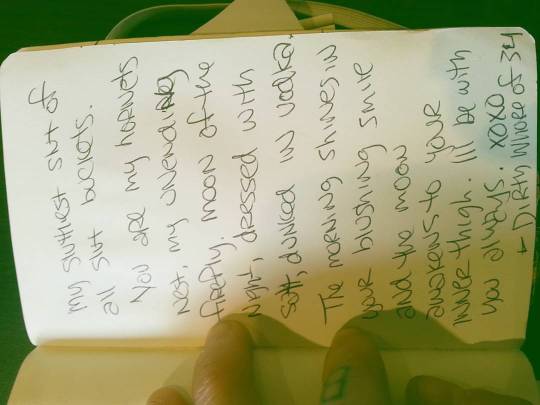 my sluttiest slut of
all slut buckets.
You are my hornets
nest, my unending
firefly. moon of the
night, dressed with
salt, dunked in vodka.
The morning shines in
your blushing smile
and the moon
awakens to your
inner thigh. I'll be with
you always. xoxo
- Dirty Whore of 34